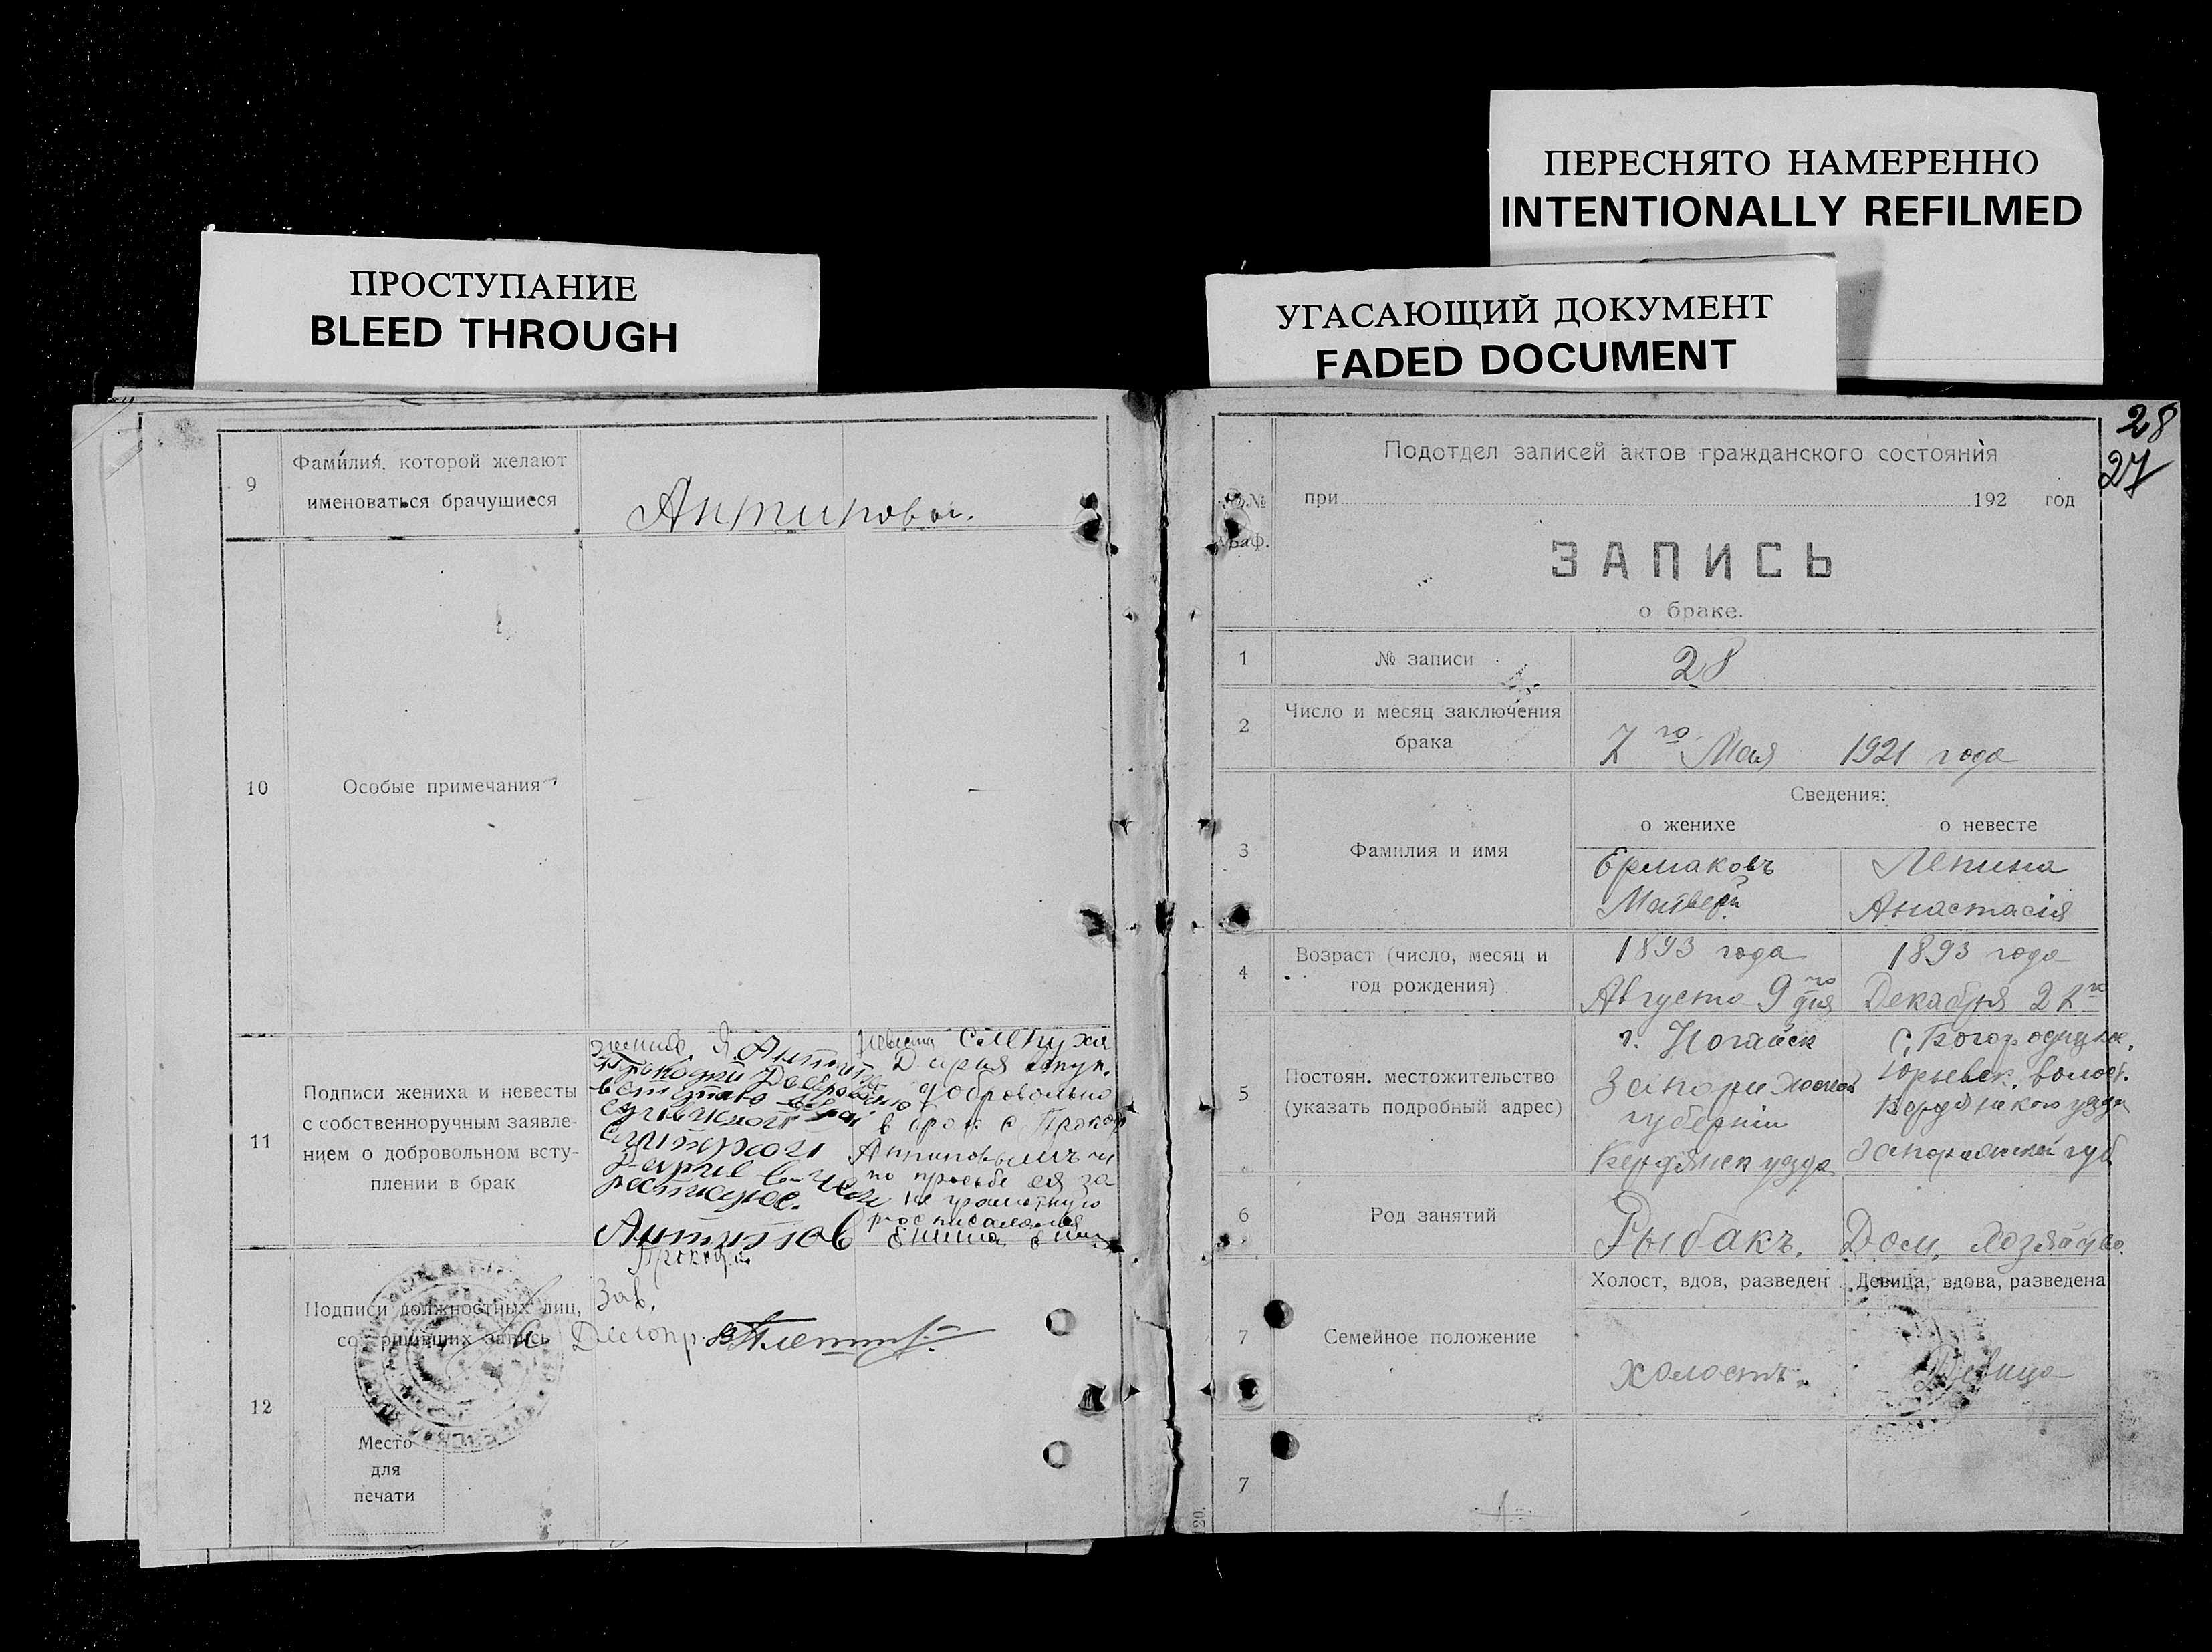 ПЕРЕСНЯТО НАМЕРЕННО
INTENTIONALLY REFILMED
ПРОСТУПАНИЕ
BLEED THROUGH
УГАСАЮЩИЙ ДОКУМЕНТ
FADED DOCUMENT
9
Фамилия, которой желают
именоваться брачущиеся
Антиповы.
10
Особые примечания
11
Подписи жениха и невесты
с собственноручным заявле-
нием о добровольном всту-
плении в брак
жених Я. Антипов
Прокофий
Антипов
Прокофий
невеста
Дария вступ.
добровольно
в брак с Прокоф
Антиповымъ и
по просьбе ея за
не грамотную
росписался
12
Подписи должностных лиц,
совершивших запись
Зав.
Делопр.
Место
для
печати
28
27
№№
граф.
Подотдел записей актов гражданского состояния
при 192 год
ЗАПИСЬ
о браке.
1
№ записи
28
2
Число и месяц заключения
брака
7го Мая 1921 года
Сведения:
о женихе
о невесте
3
Фамилия и имя
Ермаковъ
Матвей
Лепина
Анастасія
4
Возраст (число, месяц и
год рождения)
1893 года
Августа 9го дня
1893 года
Декабря 2
5
Постоян. местожительство
(указать подробный адрес)
г. Ногайск
Запорижской
губерніи
Бердянск уезда
с. Богородицкое,
Юрьевск. волост.
Бердянского уезда
Запорожской губ
6
Род занятий
Рыбакъ.
Дом. хозяйство.
7
Семейное положение
Холост, вдов, разведен
Девица, вдова, разведена
холостъ
Девица
7
20.